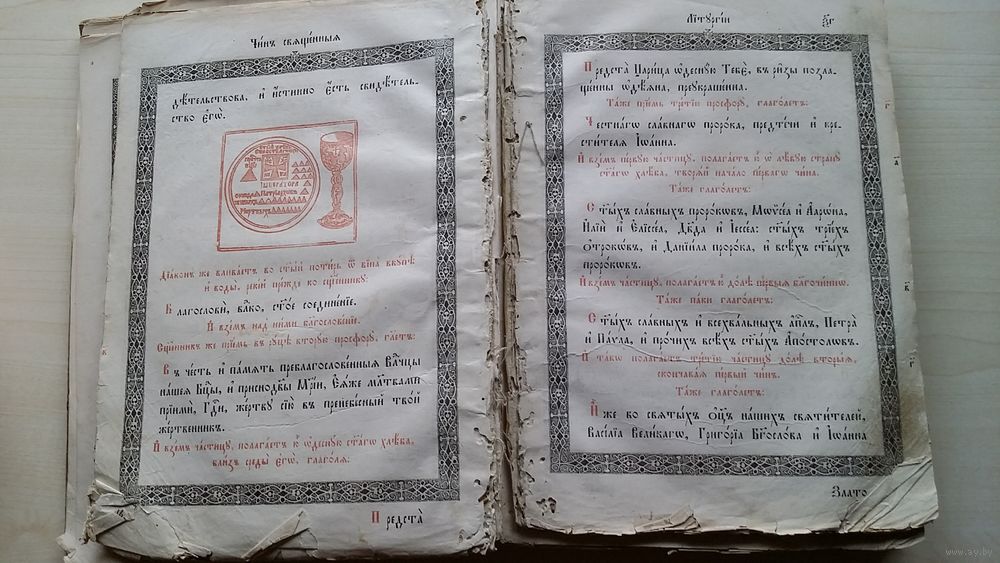 Чи́нъ свѧще́нныѧ
дѣ́тельствова, и҆ и҆́стинно є҆́сть свидѣ́тель-
ство є҆гѡ̀.
І҆мпера́тора
Дїа́конъ же влива́етъ во ст҃ы́й поти́рь ѿ вїна̀ вкꙋ́пѣ
и҆ воды̀, реки́й пре́жде ко сщ҃е́нникꙋ:
Благословѝ, влⷣко, ст҃о́е соедине́нїе.
И҆ взе́мъ над̾ ни́ми благослове́нїе.
Сщ҃е́нникъ же прїи́мъ въ рꙋ́цѣ вторꙋ́ю просфорꙋ̀, гл҃етъ:
Въ че́сть и҆ па́мѧть преблагослове́нныѧ влⷣчцы
на́шеѧ бцⷣы, и҆ приснодв҃ы мр҃і́и, є҆ѧ́же мл҃твами
прїимѝ, гдⷭ҇и, же́ртвꙋ сїю̀ въ пренбе́сный тво́й
же́ртвенникъ.
И҆ взе́мъ части́цꙋ, полага́етъ ю҆̀ ѡ҆деснꙋ́ю ст҃а́гѡ хлѣ́ба,
бли́зъ среды̀ є҆гѡ̀, глаго́лѧ:
Предста̀
Лїтꙋргі́и
Предста̀ Цари́ца ѡ҆деснꙋ́ю Тебє̀, въ ри̑зы позла-
ще́нны ѡ҆дѣ́ѧна, преукра́шена.
Та́же прїе́мь тре́тїю просфорꙋ̀, глаго́летъ:
Честна́гѡ сла́внагѡ проро́ка, предте́чи и҆ кре-
сти́телѧ І҆ѡа́нна.
И҆ взе́мъ пе́рвꙋю части́цꙋ, полага́етъ ю҆̀ ѡ҆ лѣ́вꙋю странꙋ̀
ст҃а́гѡ хлѣ́ба, творѧ́й нача́ло пе́рвагѡ чи́на.
Та́же глаго́летъ:
Ст҃ы́хъ сла́вныхъ проро́кѡвъ, Мѡѷсе́а и҆ А҆арѡ́на,
И҆лїи̑ и҆ Є҆лїссе́а, Дв҃да и҆ І҆ессе́а: ст҃ы́хъ трїе́хъ
ѻ҆трокѡ́въ, и҆ Данїи́ла проро́ка, и҆ всѣ́хъ ст҃ы́хъ
проро́кѡвъ.
И҆ взе́мъ части́цꙋ, полага́етъ ю҆̀ до́лѣ пе́рвыѧ благочи́ннѡ.
Та́же па́ки глаго́летъ:
Ст҃ы́хъ сла́вныхъ и҆ всехва́льныхъ а҆пⷭ҇лъ, Петра̀
и҆ Па́ѵла, и҆ про́чихъ всѣ́хъ ст҃ы́хъ А҆по́столѡвъ.
И҆ та́кѡ полага́етъ тре́тїю части́цꙋ до́лѣ вторы́ѧ,
сконча́ваѧ пе́рвый чи́нъ.
Та́же глаго́летъ:
И҆̀же во свѧты́хъ ѻ҆ц҃ъ на́шихъ свѧти́телей,
Васі́лїа Вели́кагѡ, Григо́рїа Бг҃осло́ва и҆ І҆ѡа́нна
Злато
www.ay.by